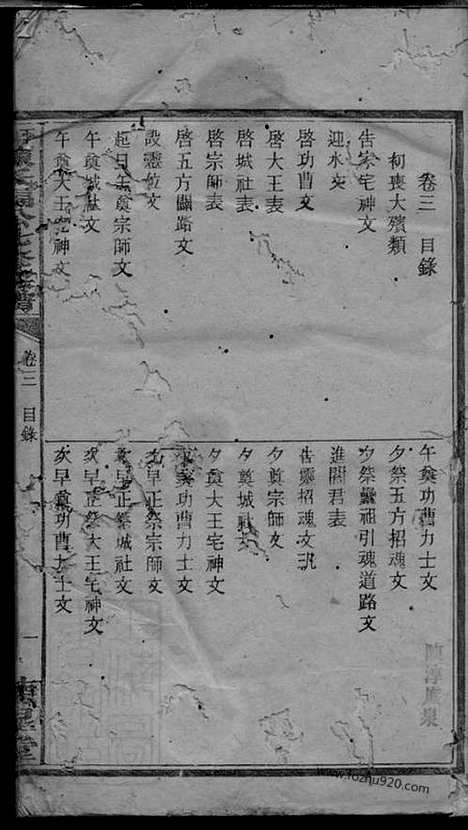 卷三 目錄
初喪大殯類
告家宅神文
迎水文
啓功曹文
啓大王表
啓城社表
啓宗師表
啓五方開路文
設靈位文
起日午奠宗師文
午奠城社文
午奠大王宅神文
午奠功曹力士文
夕祭五方招魂文
夕祭靈祖引魂道路文
進閻君表
告靈招魂文
夕奠宗師文
夕奠城社文
夕奠大王宅神文
夕奠功曹力士文
次早正祭宗師文
次早正祭城社文
次早正祭大王宅神文
次早奠功曹力士文
卷三 目錄
一
堂
www.fozhu920.com